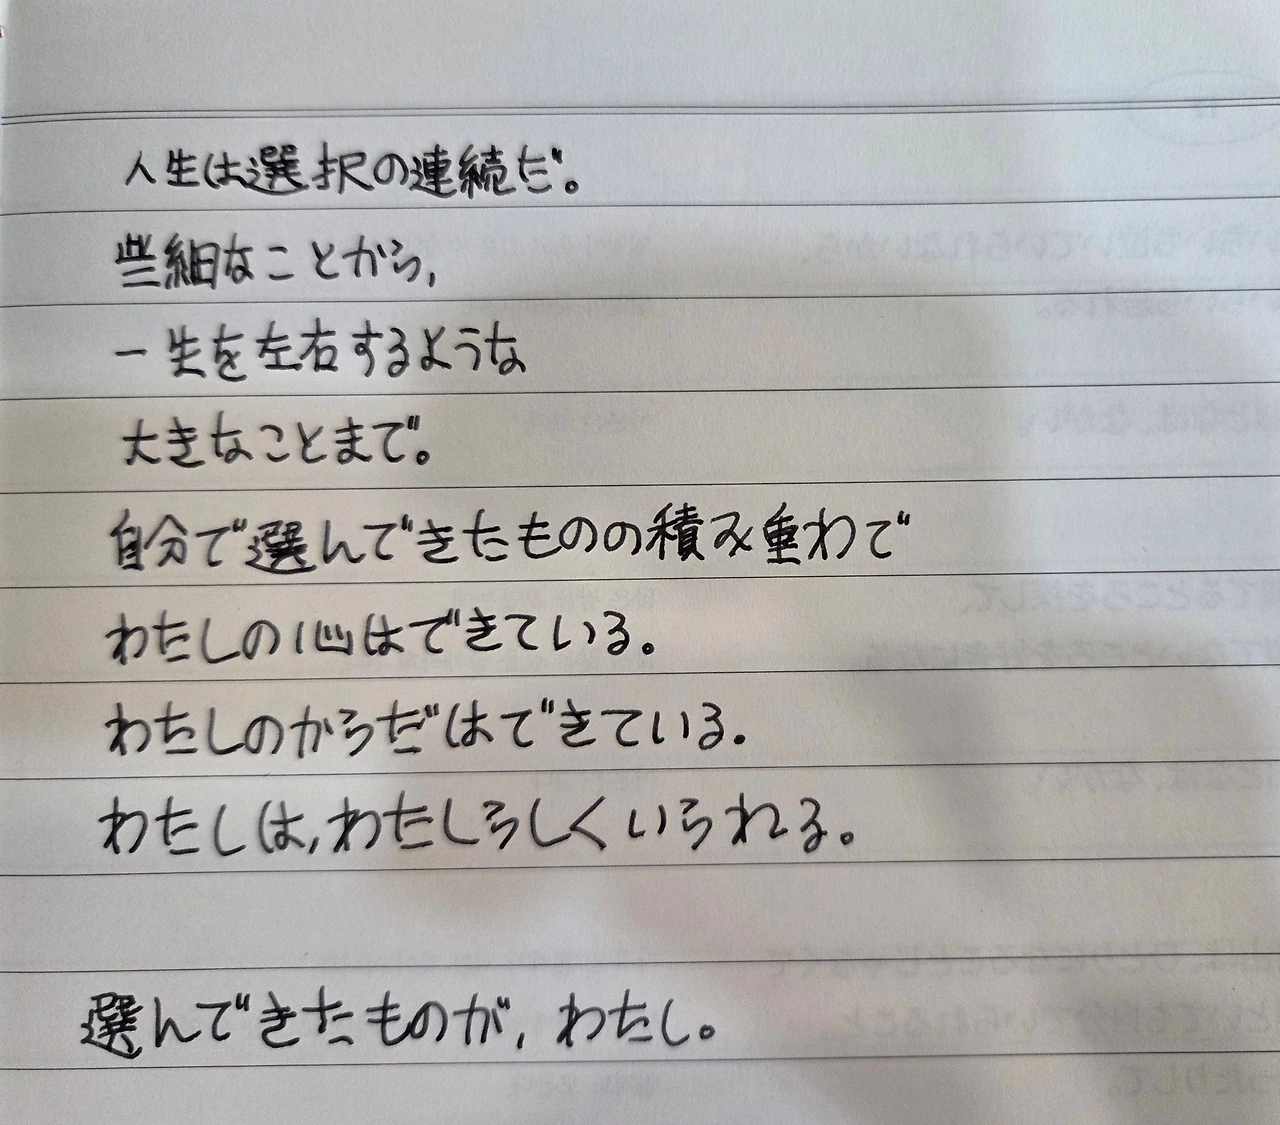 人生は選択の連続だ。
些細なことから,
一生を左右するような
大きなことまで。
自分で選んできたものの積み重わで
わたしの心はできている。
わたしのからだはできている.
わたしは,わたしらしくいられる。
選んできたものが,わたし。